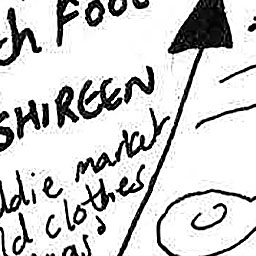 ch Foo
SHIREEN
ddie market
ld clothes